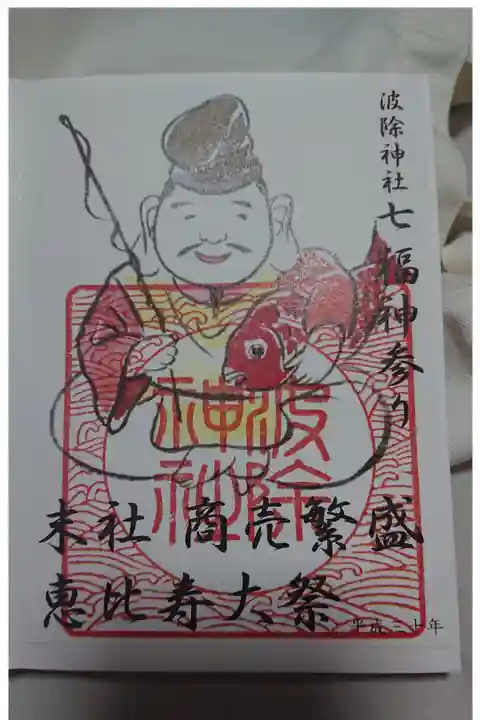 波除神社 七福神参り
波除
神社
末社 商売繁盛
恵比寿大祭
平成三十年